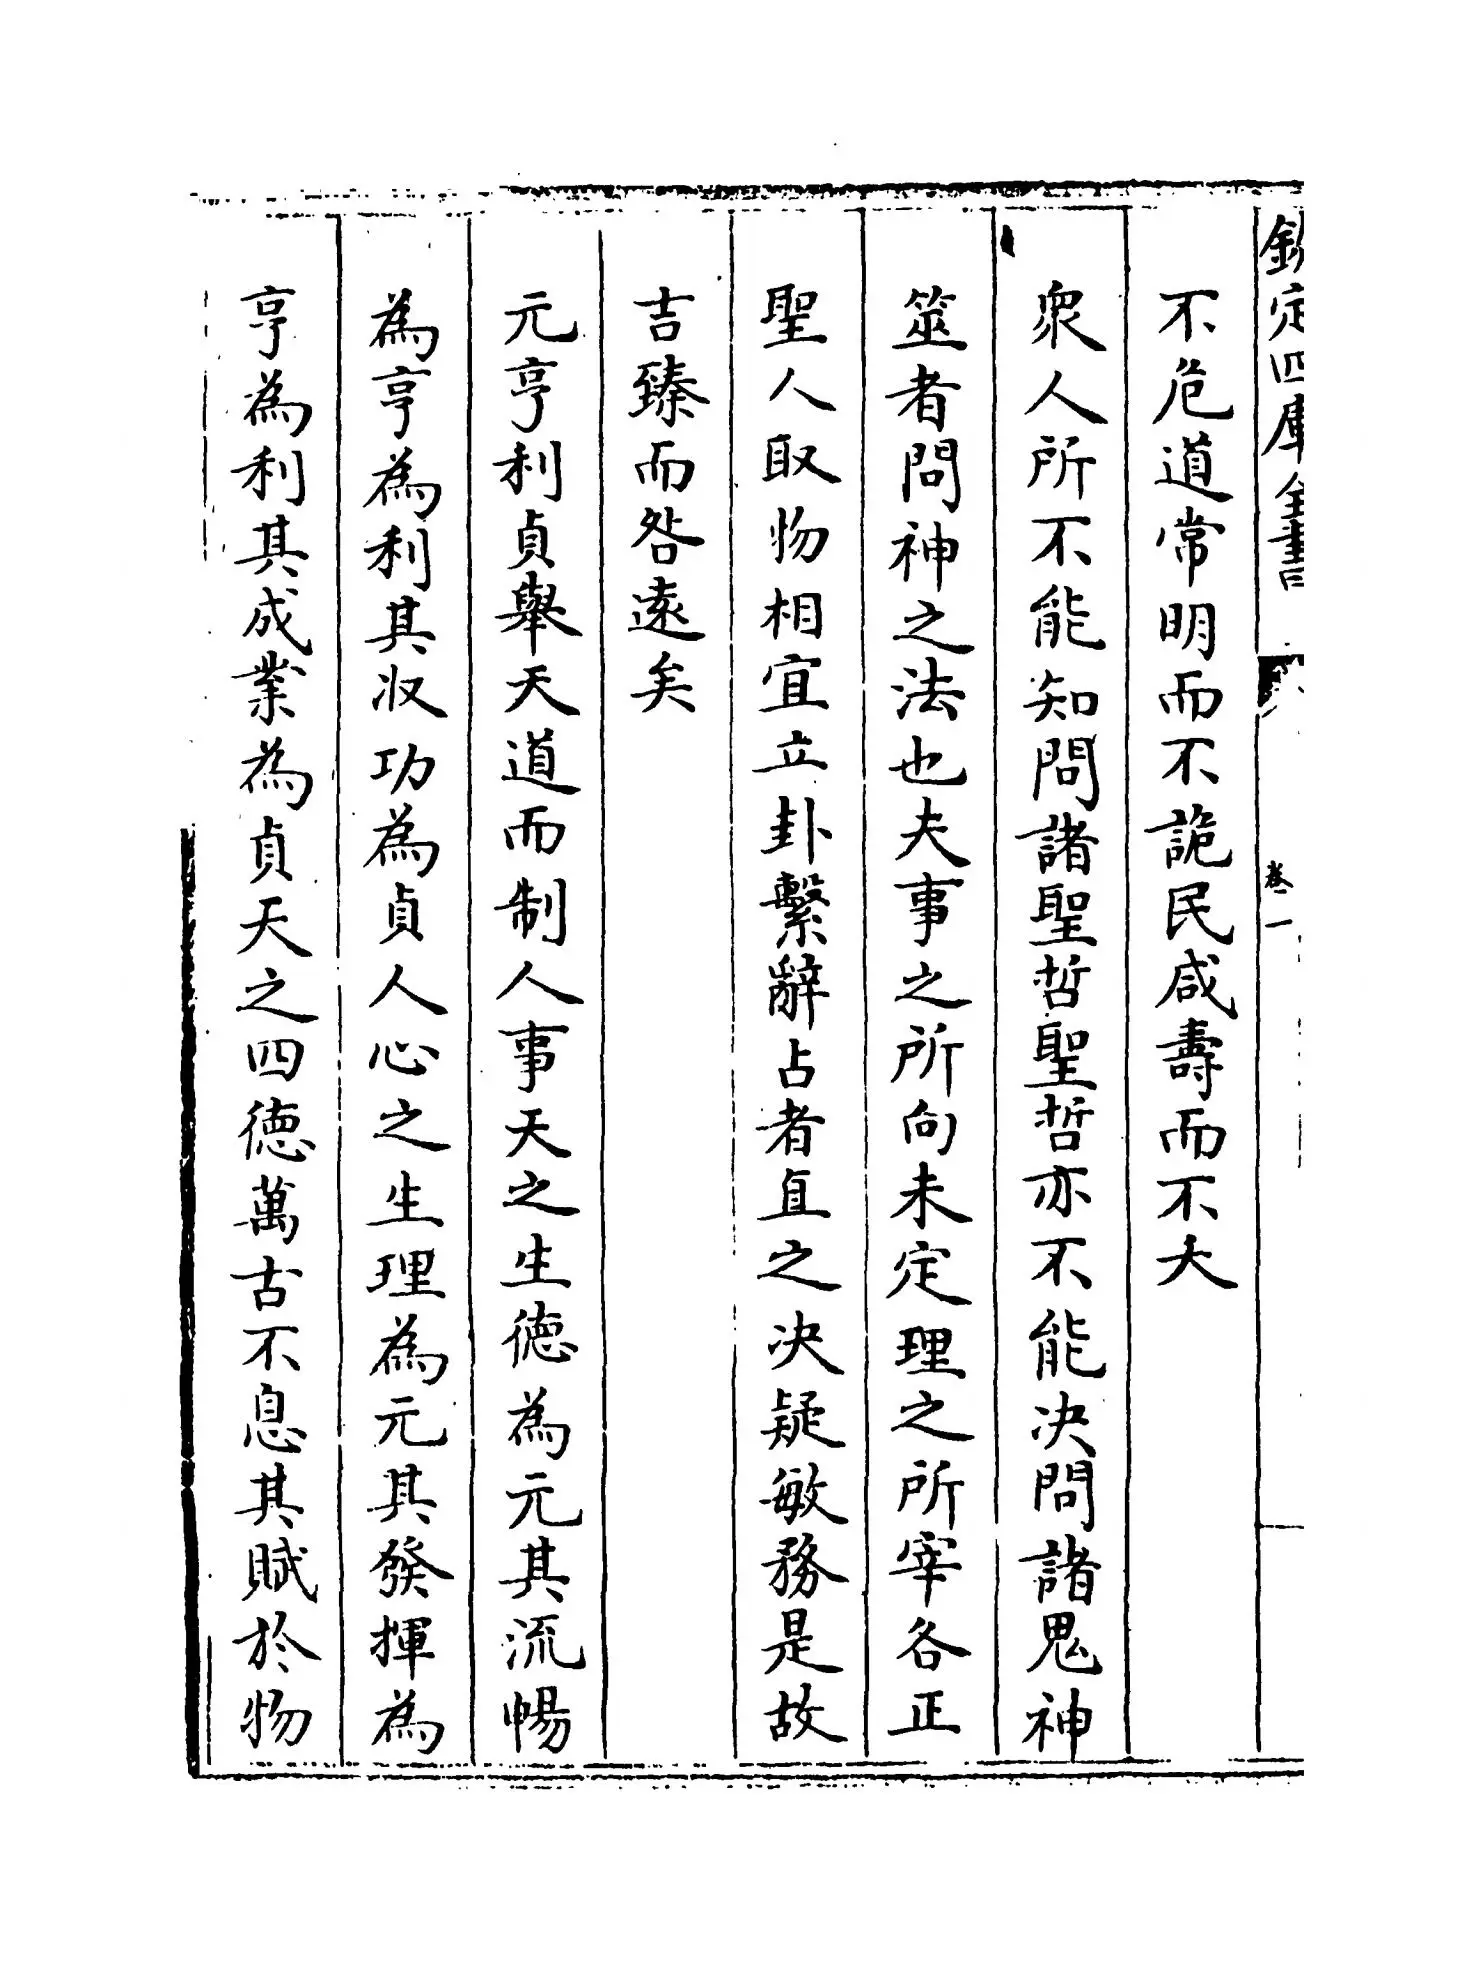 欽定四庫全書
卷一
不危道常明而不詭民咸壽而不夭
衆人所不能知問諸聖哲聖哲亦不能决問諸鬼神
筮者問神之法也夫事之所向未定理之所宰各正
聖人取物相宜立卦繫辭占者直之决疑敏務是故
吉臻而咎遠矣
元亨利貞舉天道而制人事天之生徳為元其流暢
為亨為利其収功為貞人心之生理為元其發揮為
亨為利其成業為貞天之四徳萬古不息其賦於物